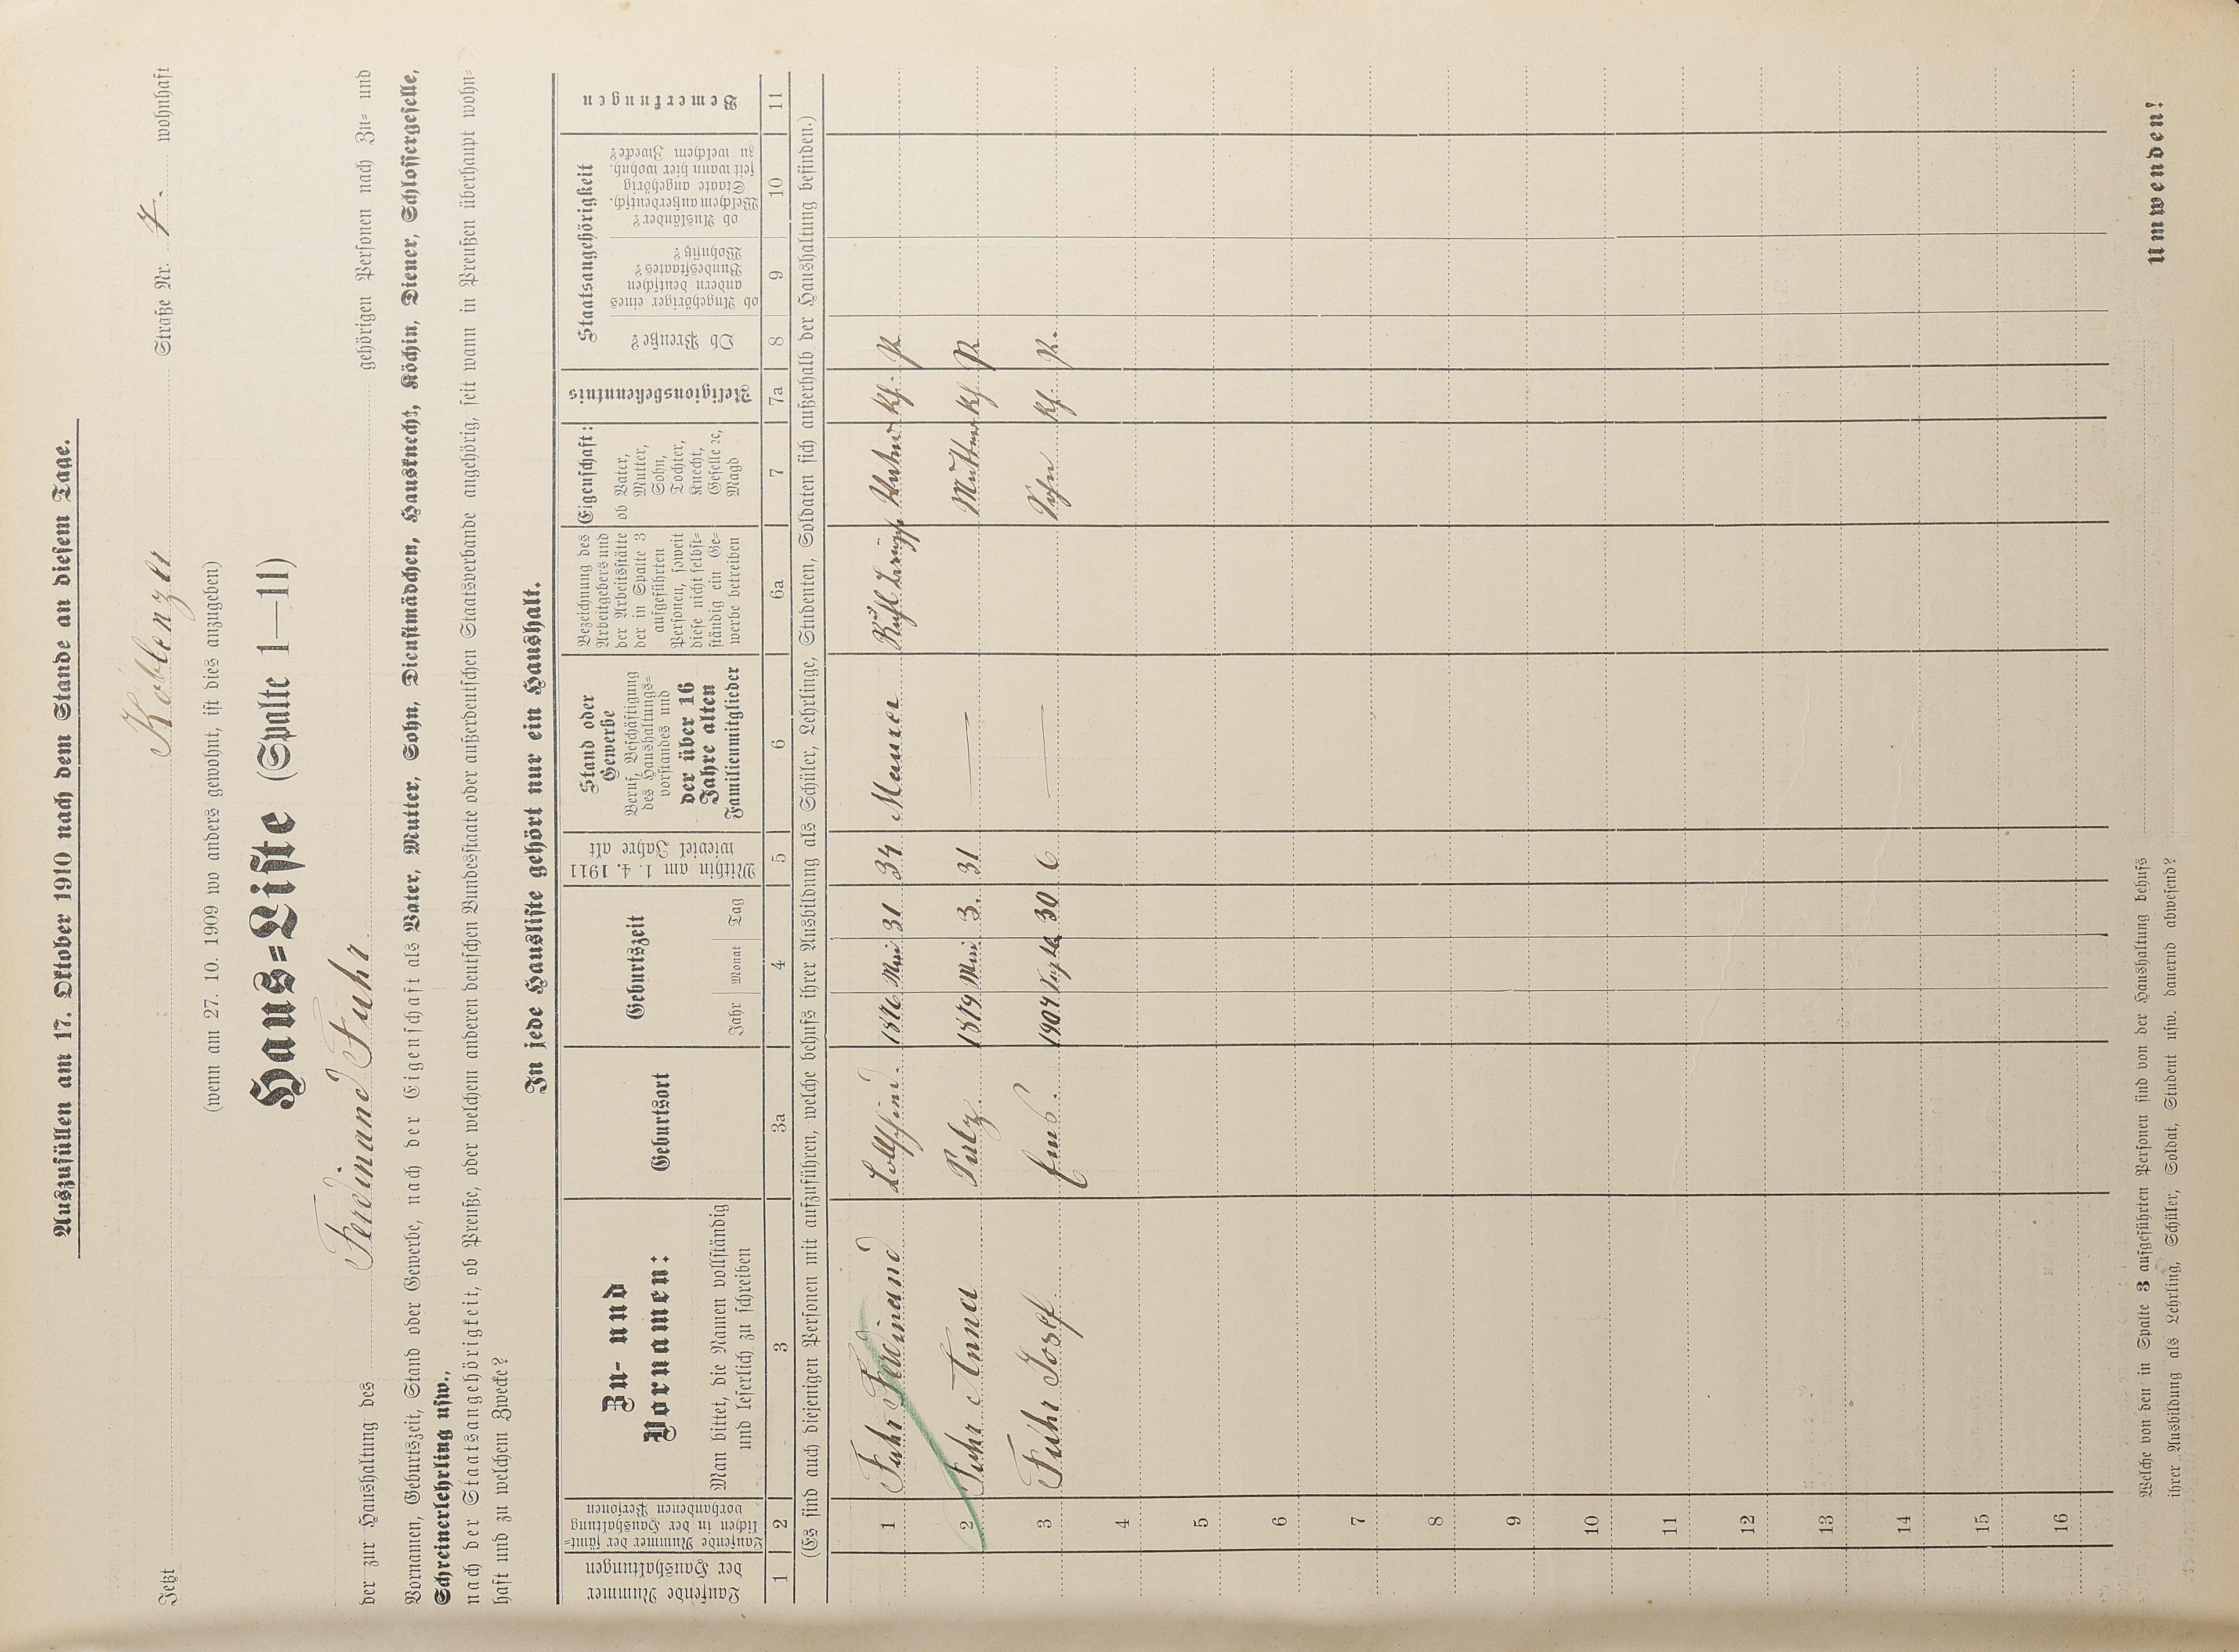 Auszufüllen am 17. Oktober 1910 nach dem Stande an diesem Tage.
Jetzt Koblenzer Straße Nr. 7. wohnhaft
(wenn am 27. 10. 1909 wo anders gewohnt, ist dies anzugeben)
Haus=Liste (Spalte 1—11)
der zur Haushaltung des Ferdinand Fuhr. gehörigen Personen nach Zu= und
Vornamen, Geburtszeit, Stand oder Gewerbe, nach der Eigenschaft als Vater, Mutter, Sohn, Dienstmädchen, Hausknecht, Köchin, Diener, Schlossergeselle,
Schreinerlehrling usw.,
nach der Staatsangehörigkeit, ob Preuße, oder welchem anderen deutschen Bundesstaate oder außerdeutschen Staatsverbande angehörig, seit wann in Preußen überhaupt wohn=
haft und zu welchem Zwecke?
In jede Hausliste gehört nur ein Haushalt.
Laufende Nummer
der Haushaltungen
Laufende Nummer der sämt=
lichen in der Haushaltung
vorhandenen Personen
Zu- und
Vornamen:
Man bittet, die Namen vollständig
und leserlich zu schreiben
Geburtsort
Geburtszeit
Jahr Monat Tag
Mithin am 1. 4. 1911
wieviel Jahre alt
Stand oder
Gewerbe
Beruf, Beschäftigung
des Haushaltungs=
vorstandes und
der über 16
Jahre alten
Familienmitglieder
Bezeichnung des
Arbeitgebers und
der Arbeitsstätte
der in Spalte 3
aufgeführten
Personen, soweit
diese nicht selbst=
ständig ein Ge=
werbe betreiben
Eigenschaft:
ob Vater,
Mutter,
Sohn,
Tochter,
Knecht,
Geselle ꝛc,
Magd
Religionsbekenntnis
Staatsangehörigkeit
Ob Preuße?
ob Angehöriger eines
andern deutschen
Bundesstaates?
Wohnsitz?
ob Ausländer?
Welchem außerdeutsch.
Staate angehörig
seit wann hier wohnh.
zu welchem Zwecke?
Bemerkungen
1 2 3 3a 4 5 6 6a 7 7a 8 9 10 11
(Es sind auch diejenigen Personen mit aufzuführen, welche behufs ihrer Ausbildung als Schüler, Lehrlinge, Studenten, Soldaten sich außerhalb der Haushaltung befinden.)
1 Fuhr Ferdinand 1876 Mai 31 34 Maurer Vater Kf. P.
2 Fuhr Anna 1879 Mai 3. 31 — Mutter Kf. P
3 Fuhr Josef Ems. 1904 30 6 — Sohn Kf. P.
4
5
6
7
8
9
10
11
12
13
14
15
16
Welche von den in Spalte 3 aufgeführten Personen sind von der Haushaltung behufs
ihrer Ausbildung als Lehrling, Schüler, Soldat, Student usw. dauernd abwesend?
umwenden!